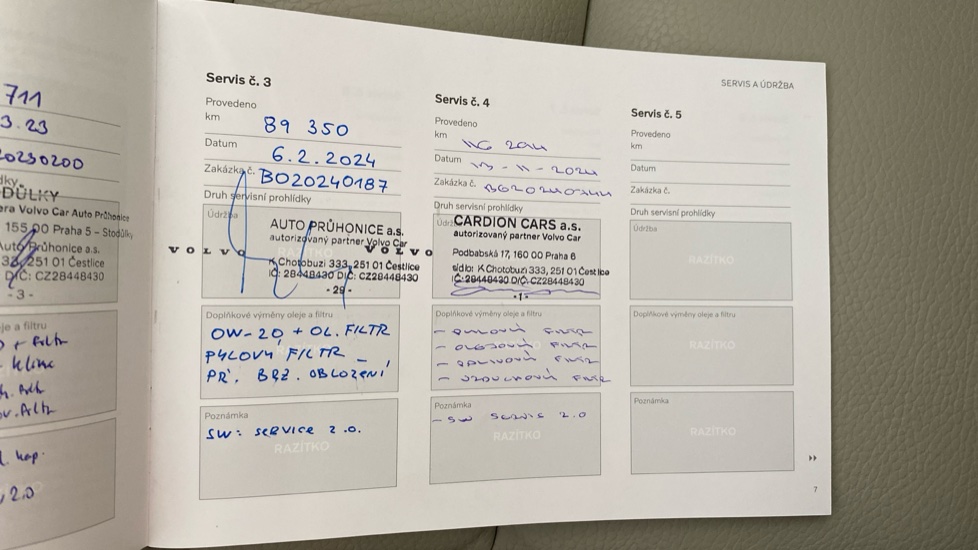 711
3.23
20230200
DŮLKY
era Volvo Car Auto Průhonice
155 00 Praha 5 - Stodůlky
Auto Průhonice a.s.
251 01 Čestlice
DIČ: CZ28448430
- 3 -
je a filtru
klima
2.0
SERVIS A ÚDRŽBA
Servis č. 3
Provedeno
km 89 350
Datum 6.2.2024
Zakázka č. BO20240187
Druh servisní prohlídky
Údržba
AUTO PRŮHONICE a.s.
autorizovaný partner Volvo Car
VOLVO
K Chotobuzi 333, 251 01 Čestlice
IČ: 28448430 DIČ: CZ28448430
- 29 -
Doplňkové výměny oleje a filtru
OW-20, + OL. FILTR
PYLOVÝ FILTR
PŘ. BRZ. OBLOŽENÍ
Poznámka
SW: SERVICE 2.0.
RAZÍTKO
Servis č. 4
Provedeno
km
Datum 13 - 11 - 2024
Zakázka č.
Druh servisní prohlídky
CARDION CARS a.s.
autorizovaný partner Volvo Car
VOLVO
Podbabská 17, 160 00 Praha 6
sídlo: K Chotobuzi 333, 251 01 Čestlice
IČ: 28448430 DIČ: CZ28448430
- 1 -
Doplňkové výměny oleje a filtru
- PYLOVÝ FILTR
- OLEJOVÝ FILTR
- PALIVOVÝ FILTR
- VZDUCHOVÝ FILTR
Poznámka
- SW SERVIS 2.0
RAZÍTKO
Servis č. 5
Provedeno
km
Datum
Zakázka č.
Druh servisní prohlídky
Údržba
RAZÍTKO
Doplňkové výměny oleje a filtru
RAZÍTKO
Poznámka
RAZÍTKO
7